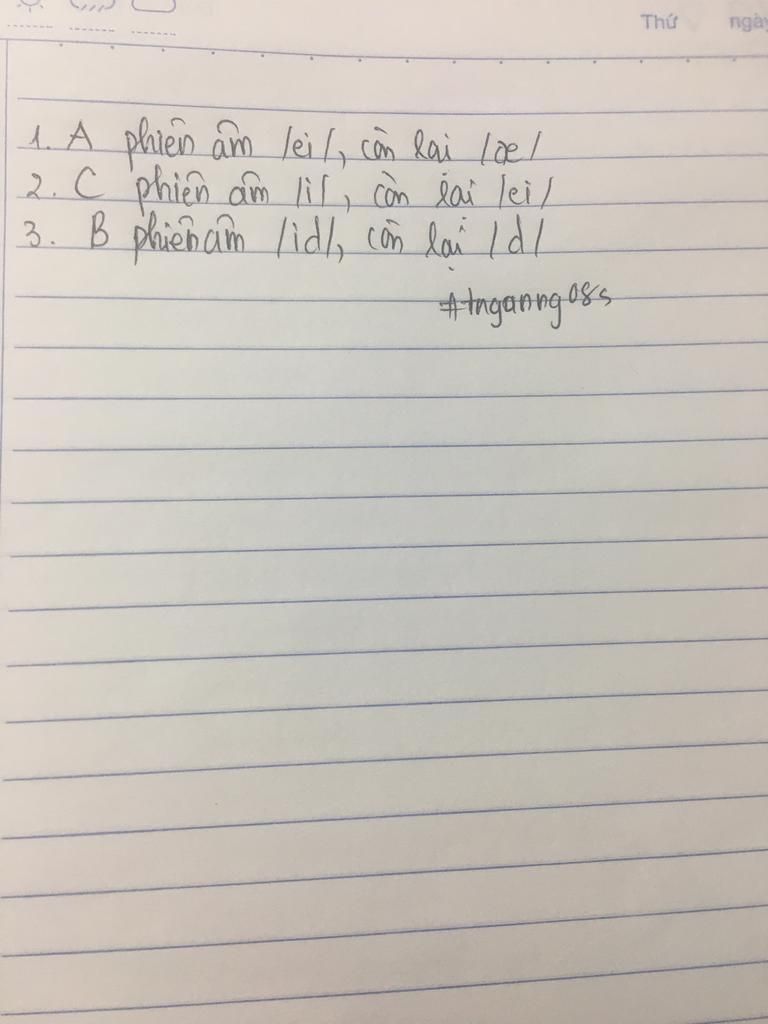 Thứ ngày
1. A phiên âm /ei/, còn lại /æ/
2. C phiên âm /i/, còn lại /ei/
3. B phiên âm /id/, còn lại /d/
#tnganng08s